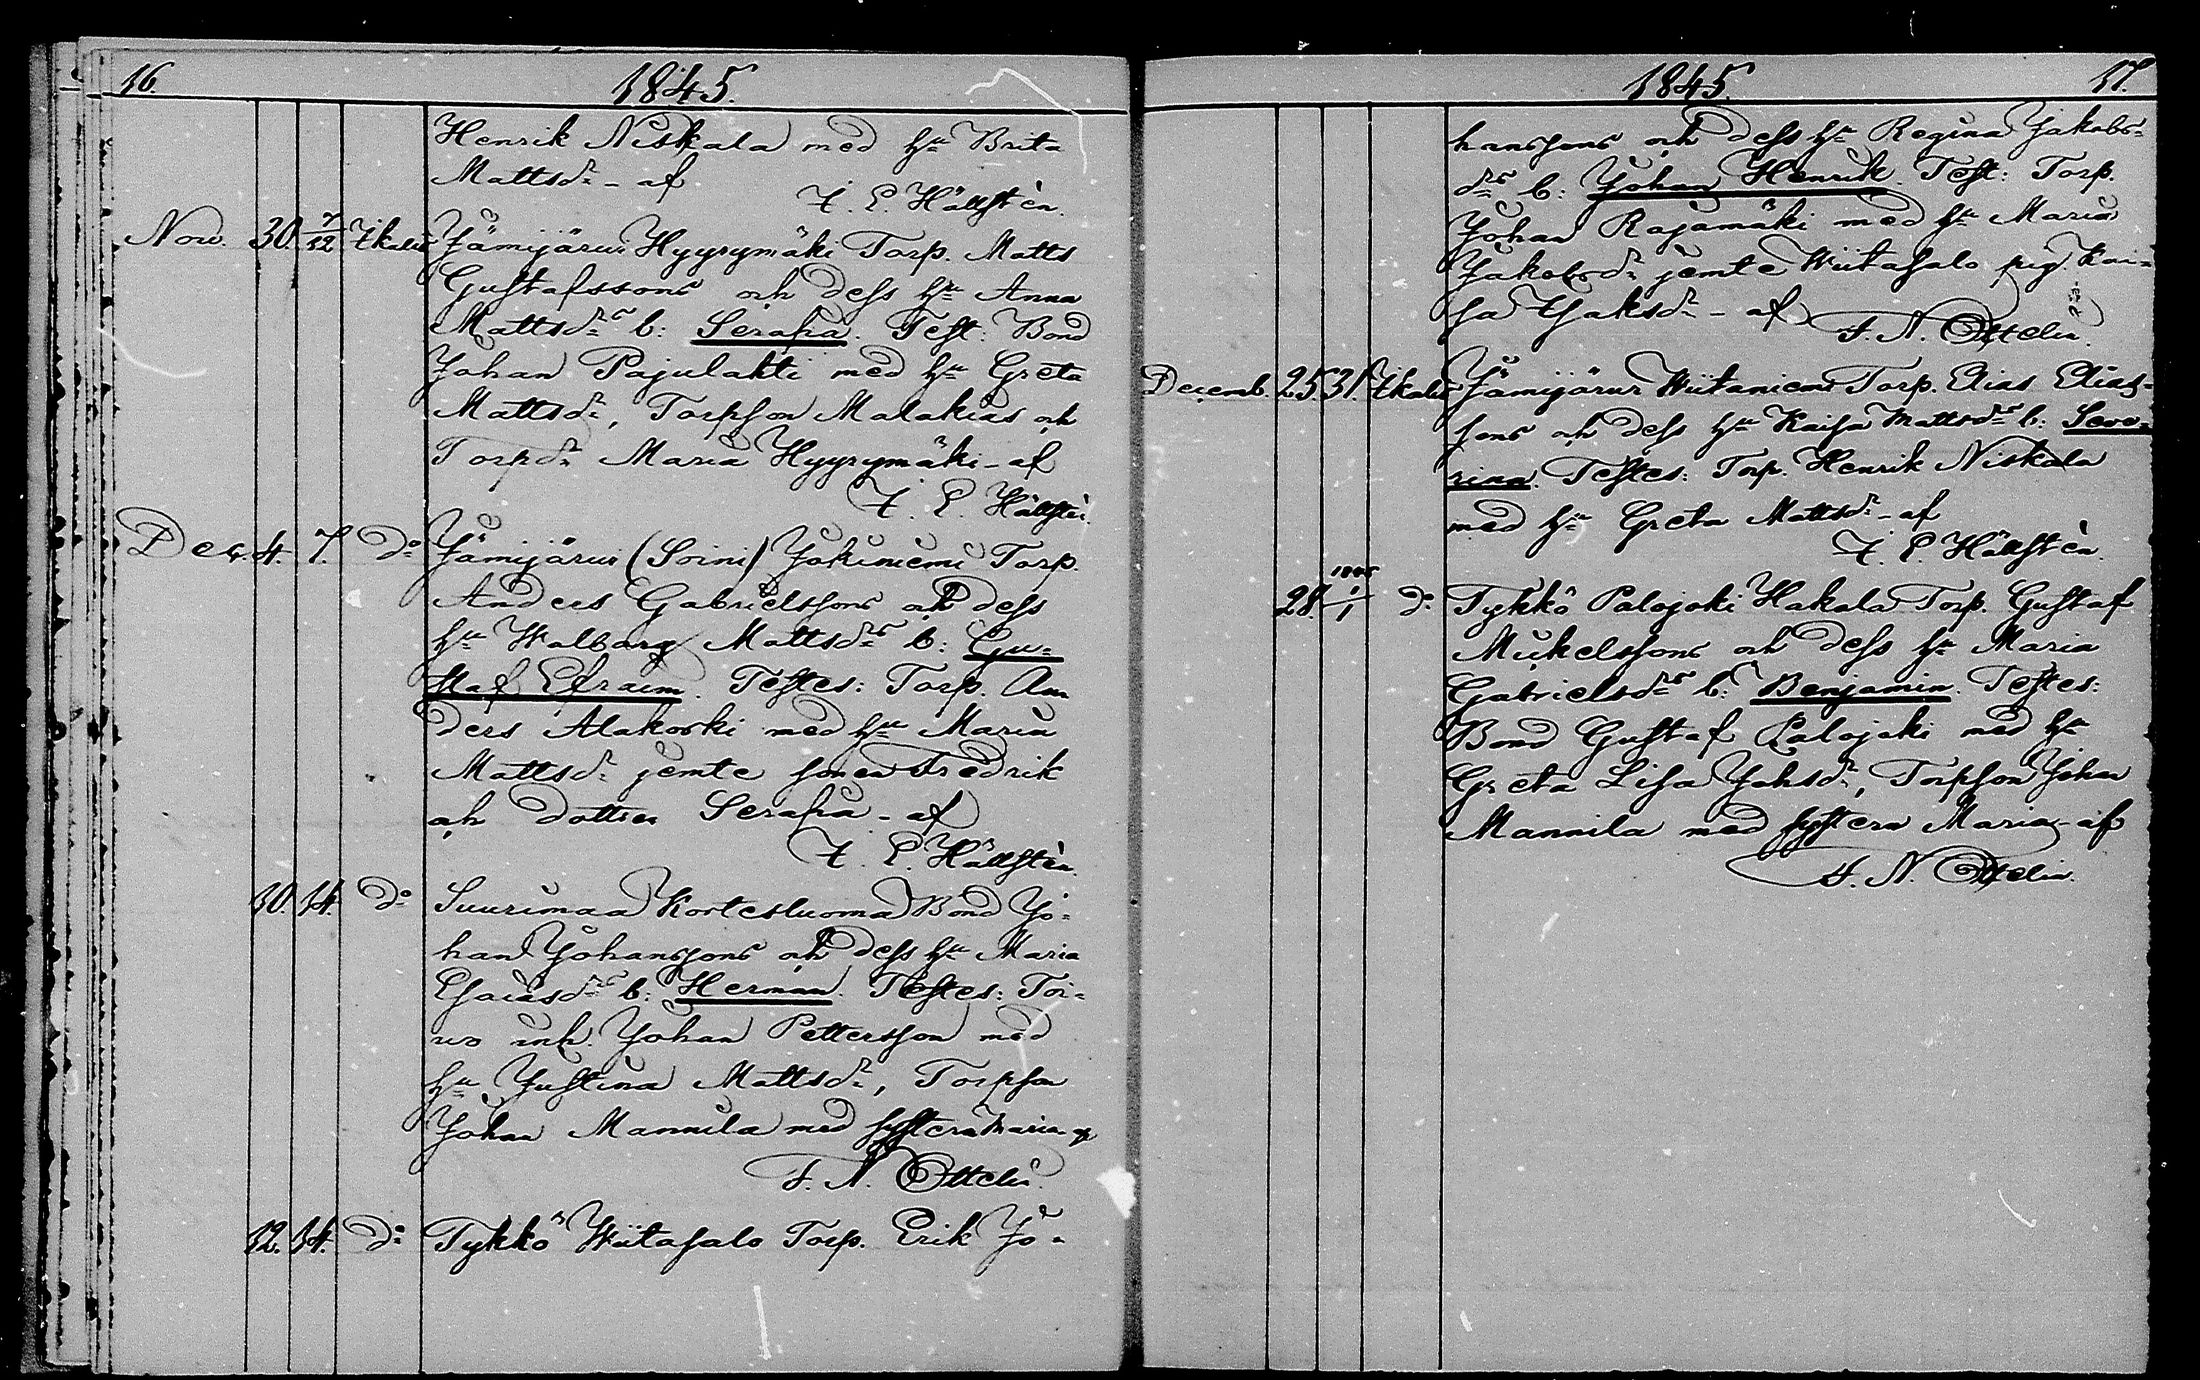 16. 1845.
Henrik Niskala med hu Brita
Mattsdr - af
F. E. Hällstén.
Nov. 30. 7/12 Ikalis Jämijärvi Hyyrymäki Torp. Matts
Gustafssons och dess hu Anna
Mattsdrs b: Serafia. Test: Bond
Johan Pajulahti med hu Greta
Mattsdr, Torpson Malakias och
Torpdr Maria Hyyrymäki - af
F. E. Hällstén.
Dec. 4. 7. do Jämijärvi (Soini) Jokiniemi Torp.
Anders Gabrielssons och dess
hu Walborg Mattsdrs b: Gu=
staf Efraim. Testes: Torp. An
ders Alakoski med hu Maria
Mattsdr jemte sonen Fredrik
och dottren Serafia - af
F. E. Hällstén.
10. 14. do Suurimaa Kortesluoma Bond Jo=
han Johanssons och dess hu Maria
Esaiasdrs b: Herman. Testes: Toi=
vo inh. Johan Pettersson med
hu Justina Mattsdr, Torpson
Johan Mannila med systern Maria af
F. N. Ottelin.
12. 14. do Tykkö Wiitasalo Torp. Erik Jo=
1845. 17.
hanssons och dess hu Regina Jakobs=
drs b: Johan Henrik. Test: Torp.
Johan Rajamäki med hu Maria
Jakobsdr jemte Wiitasalo pig. Kai=
sa Jaksdr - af
F. N. Ottelin.
Decemb. 25. 31. Ikalis Jämijärvi Wiitaniemi Torp. Elias Elias=
sons och dess hu Kaisa Mattsdrs b: Seve=
rina. Testes: Torp. Henrik Niskala
med hu Greta Mattsdr - af
F. E. Hällstén.
28. 1846 1/1 do Tykkö Palojoki Hakala Torp. Gustaf
Mickelssons och dess hu Maria
Gabrielsdrs b: Benjamin. Testes:
Bond Gustaf Palojoki med hu
Greta Lisa Johsdr, Torpson Johan
Mannila med systern Maria - af
F. N. Ottelin.